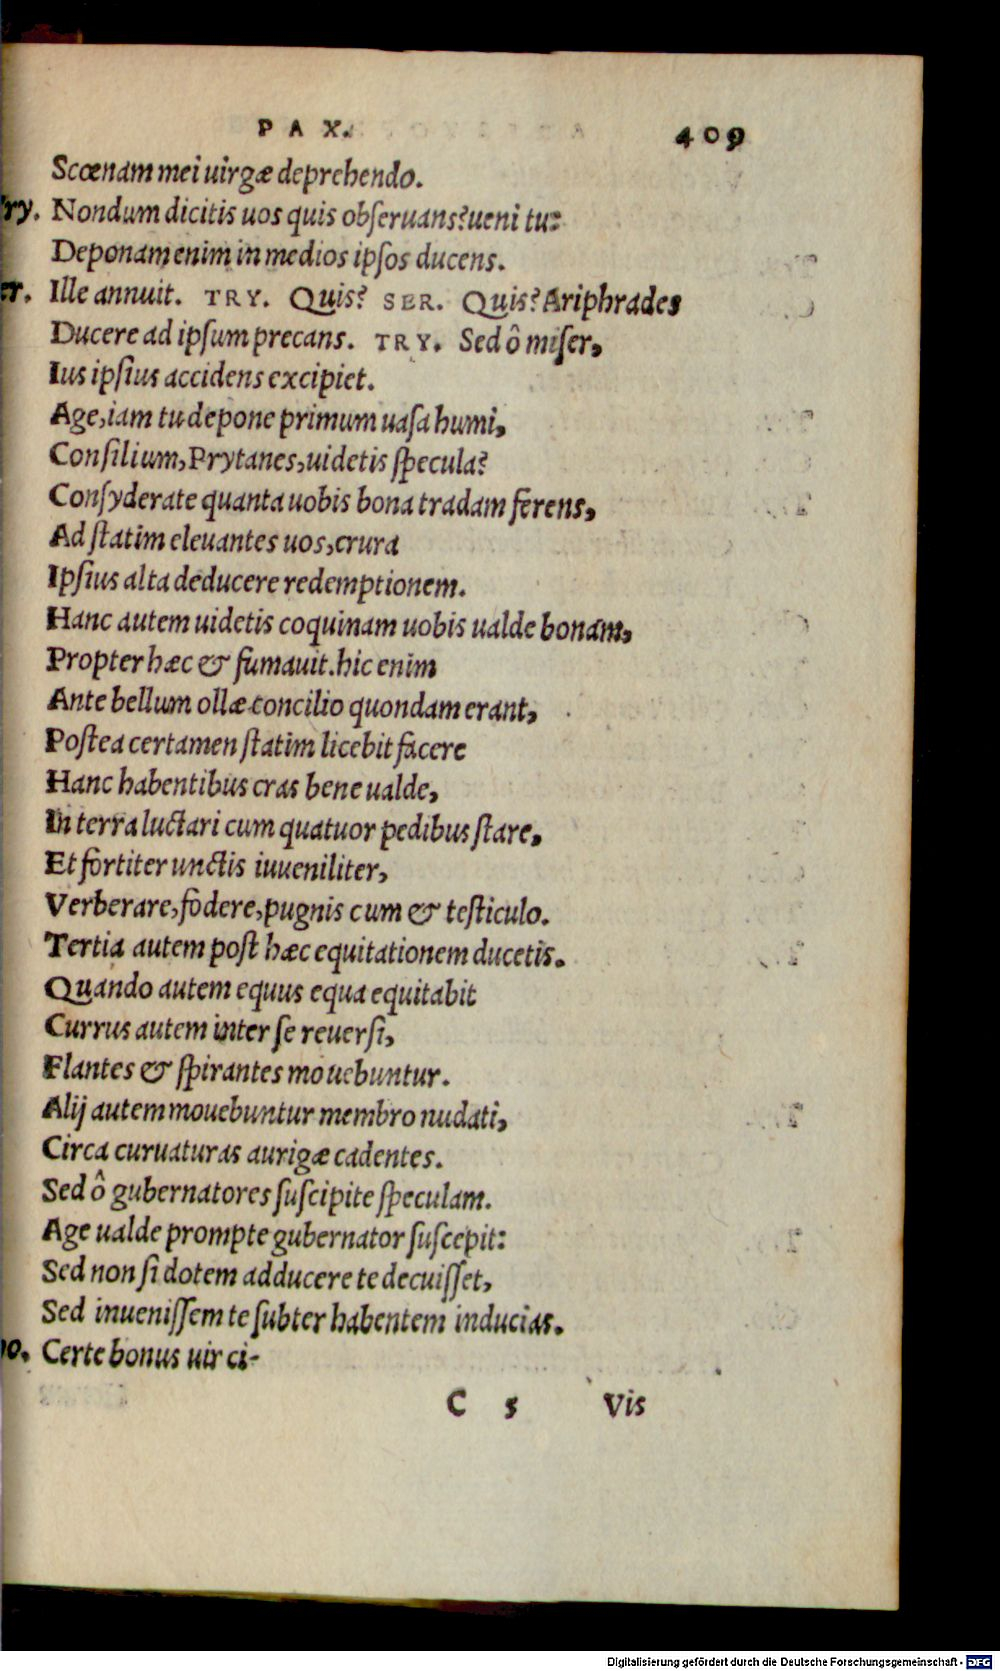 PAX. 409
Scœnam mei uirgæ deprehendo.
Try. Nondum dicitis uos quis obſeruans? ueni tu:
Deponam enim in medios ipſos ducens.
er. Ille annuit. TRY. Quis? SER. Quis? Ariphrades
Ducere ad ipſum precans. TRY. Sed ô miſer,
Ius ipſius accidens excipiet.
Age, iam tu depone primum uaſa humi,
Conſilium, Prytanes, uidetis ſpecula?
Conſyderate quanta uobis bona tradam ferens,
Ad ſtatim eleuantes uos, crura
Ipſius alta deducere redemptionem.
Hanc autem uidetis coquinam uobis ualde bonam,
Propter hæc & fumauit. hic enim
Ante bellum ollæ concilio quondam erant,
Poſtea certamen ſtatim licebit facere
Hanc habentibus cras bene ualde,
In terra luctari cum quatuor pedibus ſtare,
Et fortiter unctis iuueniliter,
Verberare, fodere, pugnis cum & teſticulo.
Tertia autem poſt hæc equitationem ducetis.
Quando autem equus equa equitabit
Currus autem inter ſe reuerſi,
Flantes & ſpirantes mouebuntur.
Alij autem mouebuntur membro nudati,
Circa curuaturas aurigæ cadentes.
Sed ô gubernatores ſuſcipite ſpeculam.
Age ualde prompte gubernator ſuſcepit:
Sed non ſi dotem adducere te decuiſſet,
Sed inueniſſem te ſubter habentem inducias.
ho. Certe bonus uir ci-
C 5 Vis
Digitalisierung gefördert durch die Deutsche Forschungsgemeinschaft - DFG